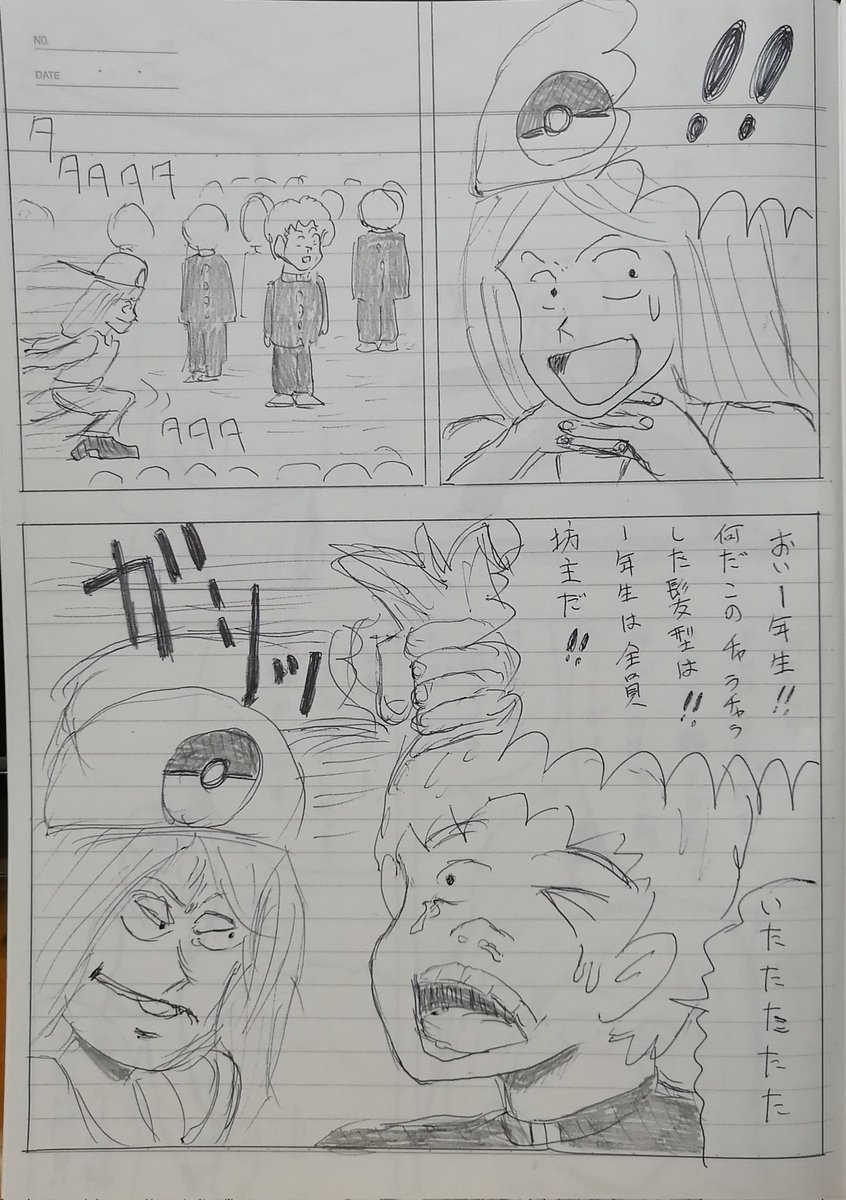 NO.
DATE
!!
タ
タタタタ
タタタ
おい1年生!!
何だこのチャラチャラ
した髪型は!!
1年生は全員
坊主だ!!
ガシッ
いたたたたた